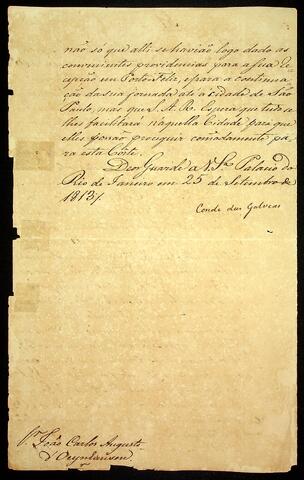 não só que alli se havião logo dado as
convenientes providencias para a sua Re-
cepção em Porto Feliz, e para a continua-
ção da sua jornada até á Cidade de São
Paulo, mas que S. A. R. Espera que tudo se
lhes facilitará naquella Cidade para que
elles possão proseguir comodamente pa-
ra esta Côrte.
Deos Guarde a V. Sª. Palacio do
Rio de Janeiro em 25 de Setembro de
1813.
Conde das Galveas
Sr. João Carlos Augusto
d'Oeynhausen